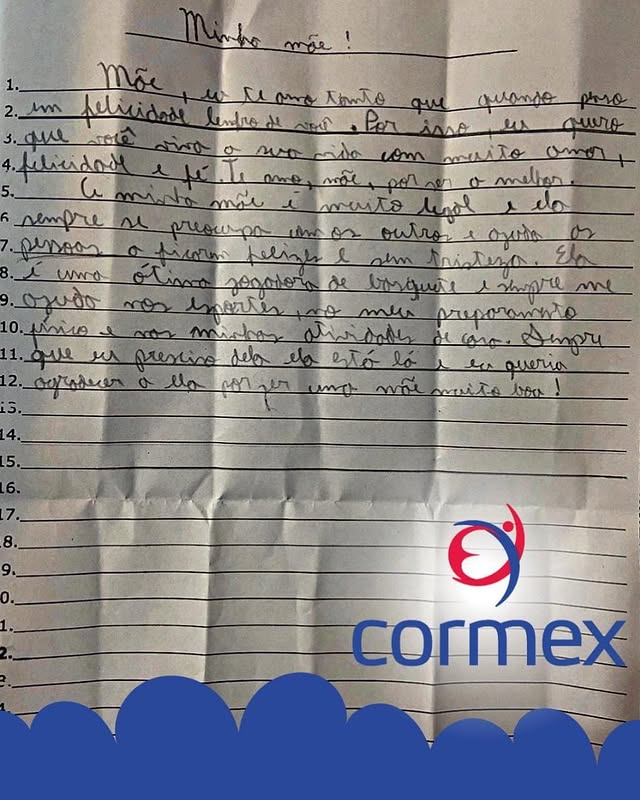 Minha mãe!
1. Mãe, eu te amo tanto que quando penso
2. em felicidade lembro de você. Por isso, eu quero
3. que você viva a sua vida com muito amor,
4. felicidade e fé. Te amo, mãe, por ser a melhor.
5. A minha mãe é muito legal e ela
6 sempre se preocupa com os outros e ajuda as
7. pessoas a ficarem felizes e sem tristeza. Ela
8. é uma ótima jogadora de basquete e sempre me
9. ajuda nos esportes, no meu preparamento
10. físico e nas minhas atividades de casa. Sempre
11. que eu preciso dela ela está lá e eu queria
12. agradecer a ela por ser uma mãe muito boa!
13.
14.
15.
16.
17.
8.
9.
0.
1.
2.
cormex